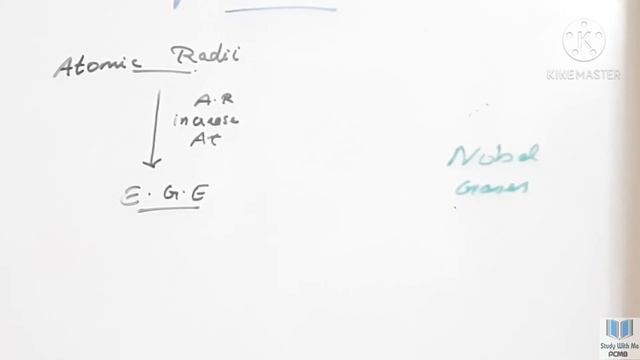 Atomic Radii
A.R
increase
At
E.G.E
Nobel
Gases
KINEMASTER
Study With Me
PCMB